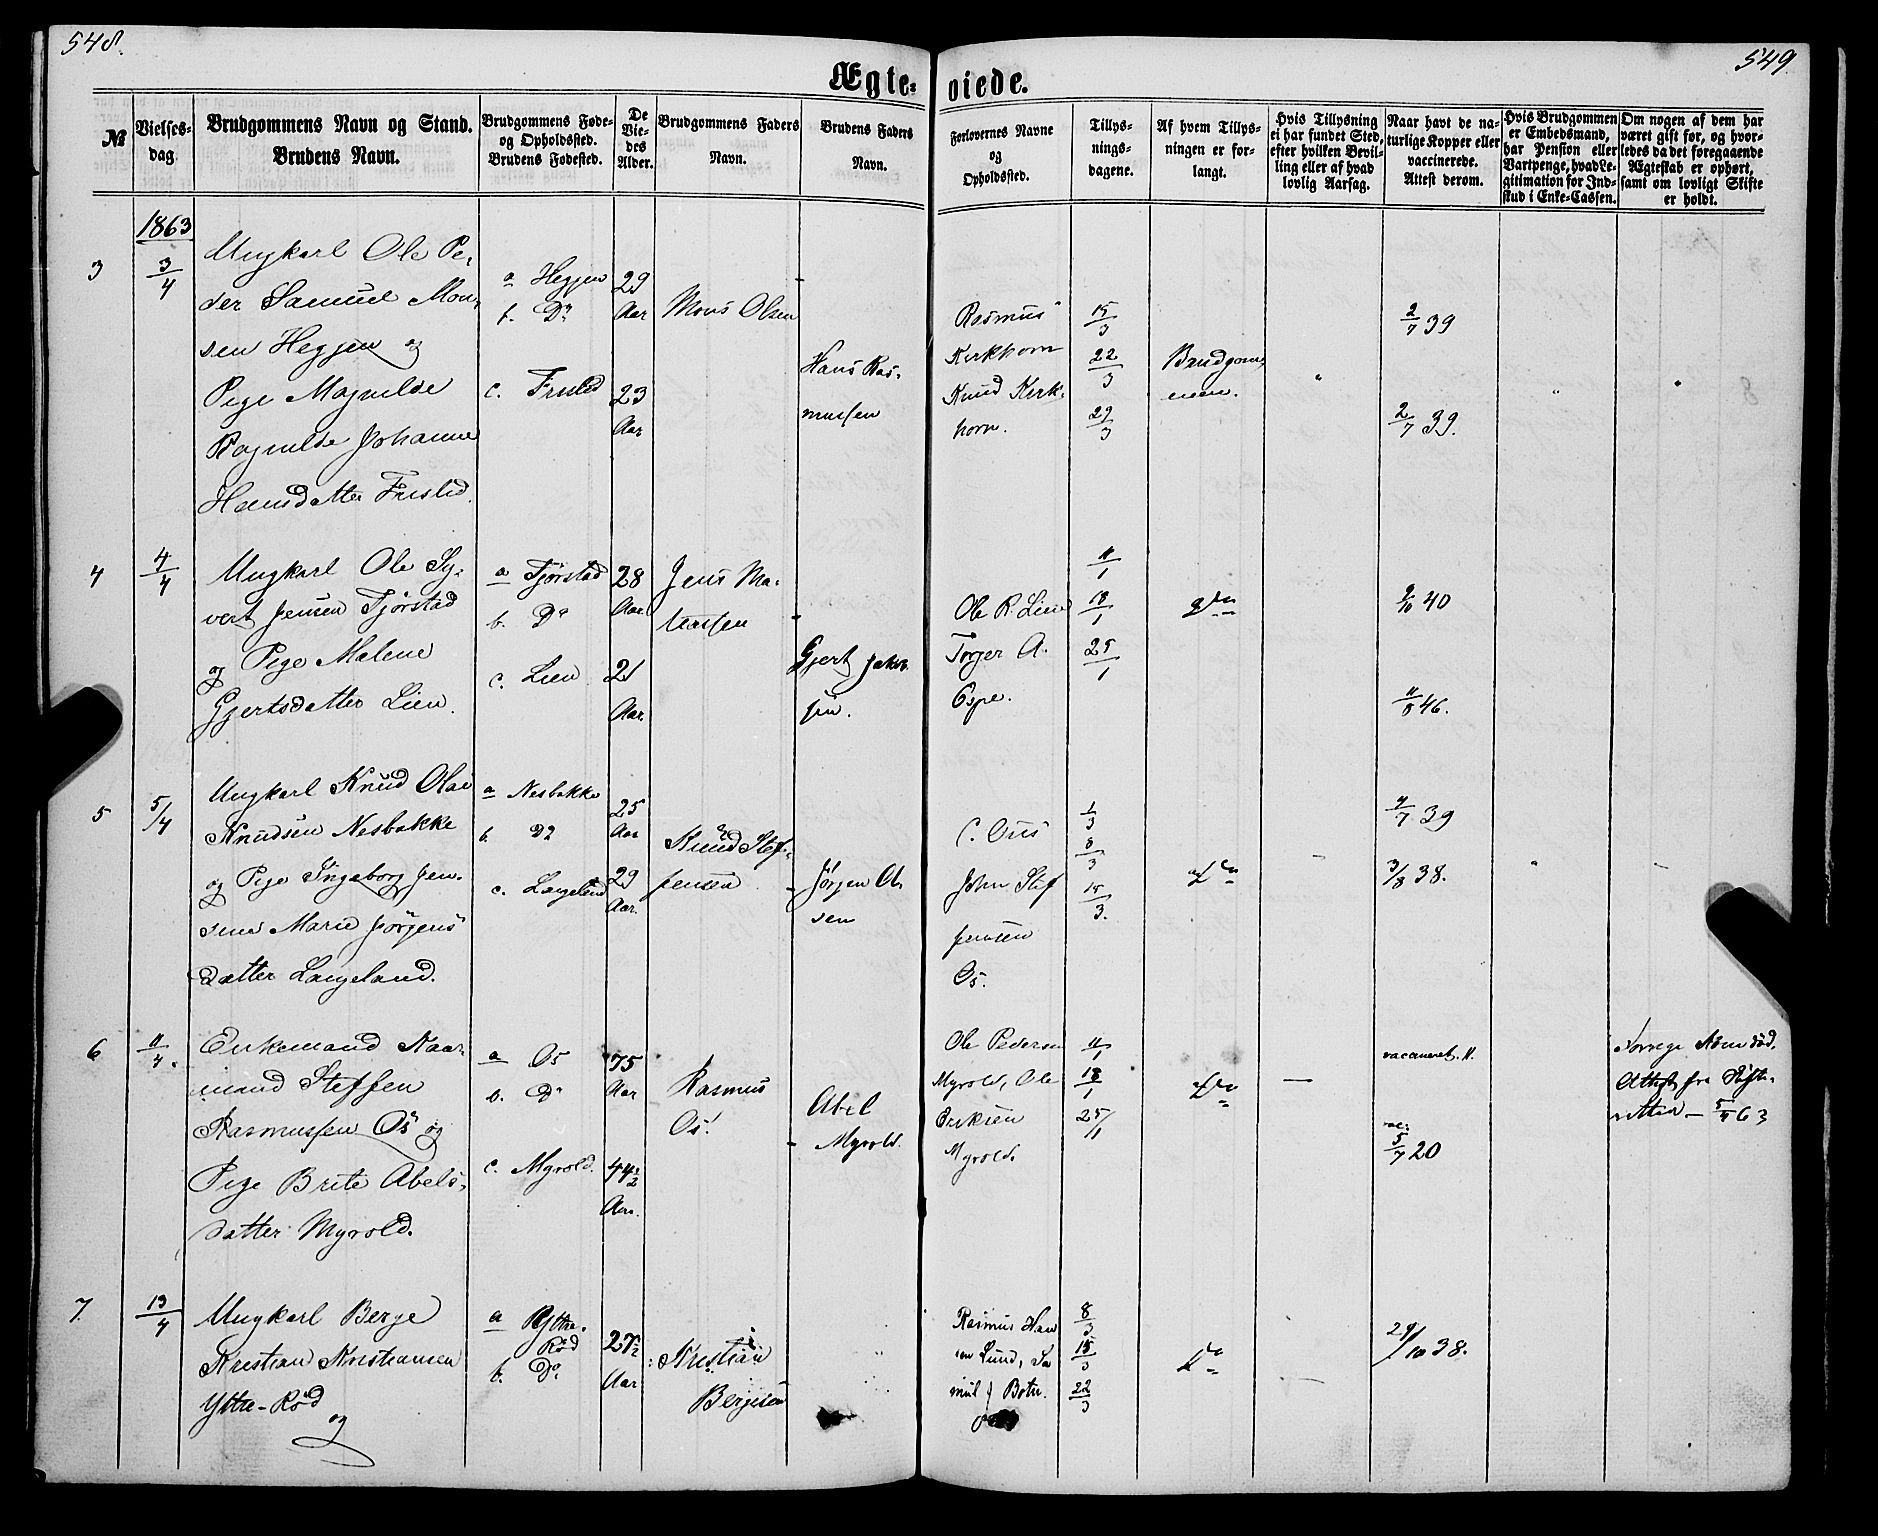 548.
549
Ægte-
viede.
№
Vielses-
dag.
Brudgommens Navn og Stand.
Brudens Navn.
Brudgommens Føde-
og Opholdssted.
Brudens Fødested.
De
Vie-
des
Alder.
Brudgommens Faders
Navn.
Brudens Faders
Navn.
Forlovernes Navne
og
Opholdssted.
Tillys-
nings-
dagene.
Af hvem Tillys-
ningen er for-
langt.
Hvis Tillysning
ei har fundet Sted,
efter hvilken Bevil-
ling eller af hvad
lovlig Aarsag.
Naar havt de na-
turlige Kopper eller
vaccinerede.
Attest derom.
Hvis Brudgommen
er Embedsmand,
har Pension eller
Vartpenge, hvad Le-
gitimation for Ind-
skud i Enke-Cassen.
Om nogen af dem har
været gift før, og hvor-
ledes da det foregaaende
Ægteskab er ophørt,
samt om lovligt Skifte
er holdt.
1863
3
3/4
Ungkarl Ole Pe-
der Samuel Mon-
sen Heggen og
Pige Magnilde
Ragnilde Johanne
Hansdatter Fristed.
a Heggen
b. Do
c. Fristed
29
Aar
23
Aar
Mons Olsen
Hans Ras-
mussen
Rasmus
Kirkhorn
Knud Kirk-
horn.
15/3
22/3
29/3
Brudgom-
men.
2/7 39
2/7 39.
4
4/4
Ungkarl Ole Sy-
vert Jensen Tjørstad
og Pige Malene
Gjertsdatter Lien.
a Tjørstad
b. Do
c. Lien
28
Aar
21
Aar.
Jens Ma-
Gjert Jakob-
sen.
Ole R. Lien
Torger A.
Espe.
11/1
18/1
25/1
do
9/10 40
11/8 46.
5
5/4
Ungkarl Knud Olai
Knudsen Nesbakke
og Pige Ingeborg Jen-
sine Marie Jørgens
datter Langeland.
a Nesbakke
b. Do
c. Langeland
25
Aar
29
Aar.
Knud Stef-
fensen
Jørgen Ol-
sen
C. Aus
John Stef
fensen
Os.
1/3
8/3
15/3.
do
4/7 39
3/8 38.
6
11/4.
Enkemand Kaar-
mand Steffen
Rasmussen Os og
Pige Brite Abels-
datter Myrold.
a Os
b. Do
c. Myrold.
75
Aar
44½
Aar.
Rasmus
Os.
Abel
Myrold.
Ole Pedersen
Myrold, Ole
Eriksen
Myrold.
11/1
18/1
25/1
do
vac:
5/7 20
Forrige Kone død.
Attest fra Skifte-
retten 5/4 63
7.
13/4
Ungkarl Berge
Kristian Kristiansen
Ytre-Rød
og
a Ytre-
Rød
b. Do
27½
Aar
Kristian
Bergesen
Rasmus Han
sen Lund, Sa
muel J Botn.
8/3
15/3
22/3
do
29/10 38.